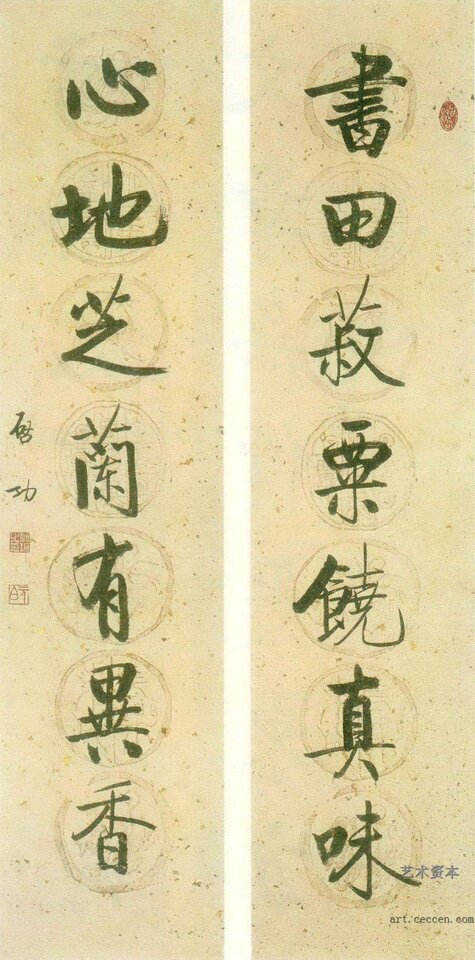 書田菽粟饒真味
心地芝蘭有異香
啓功
艺术资本
art.ceccen.com